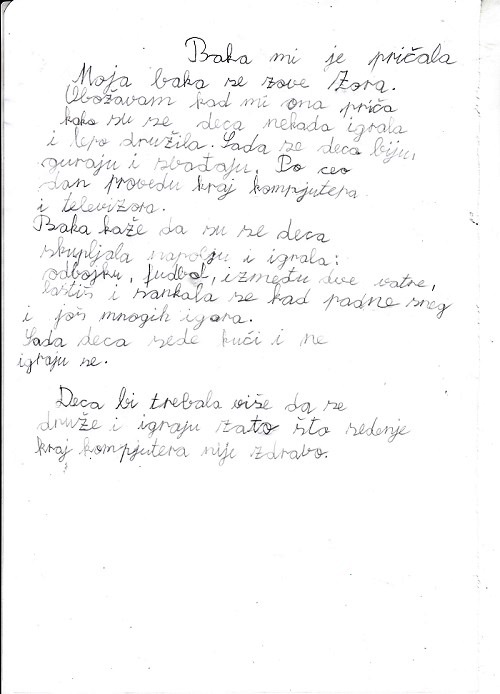 Baka mi je pričala
Moja baka se zove Zora.
Obožavam kad mi ona priča
kako su se deca nekada igrala
i lepo družila. Sada se deca biju,
guraju i svađaju. Po ceo
dan provedu kraj kompjutera
i televizora.
Baka kaže da su se deca
skupljala napolju i igrala:
odbojku, fudbal, između dve vatre,
lastiš i sankala se kad padne sneg
i još mnogih igara.
Sada deca sede kući i ne
igraju se.
Deca bi trebala više da se
druže i igraju zato što sedenje
kraj kompjutera nije zdravo.